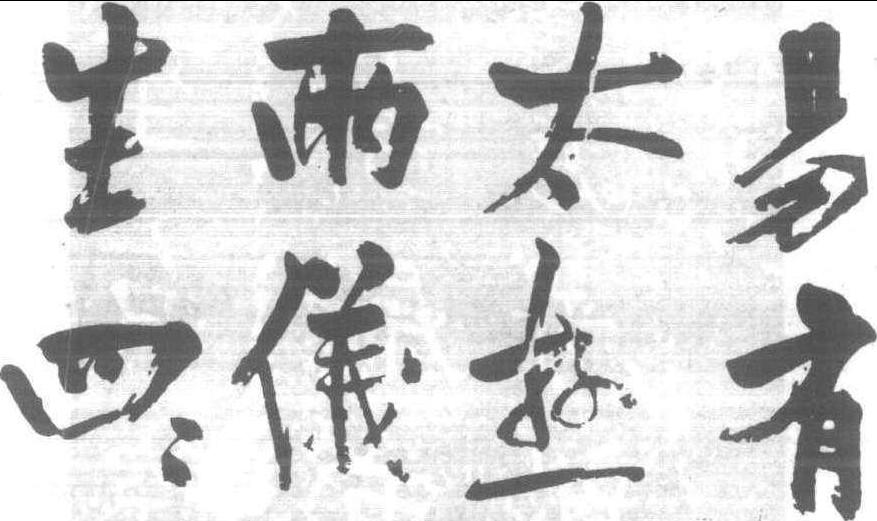 易有
太極
兩儀
生四